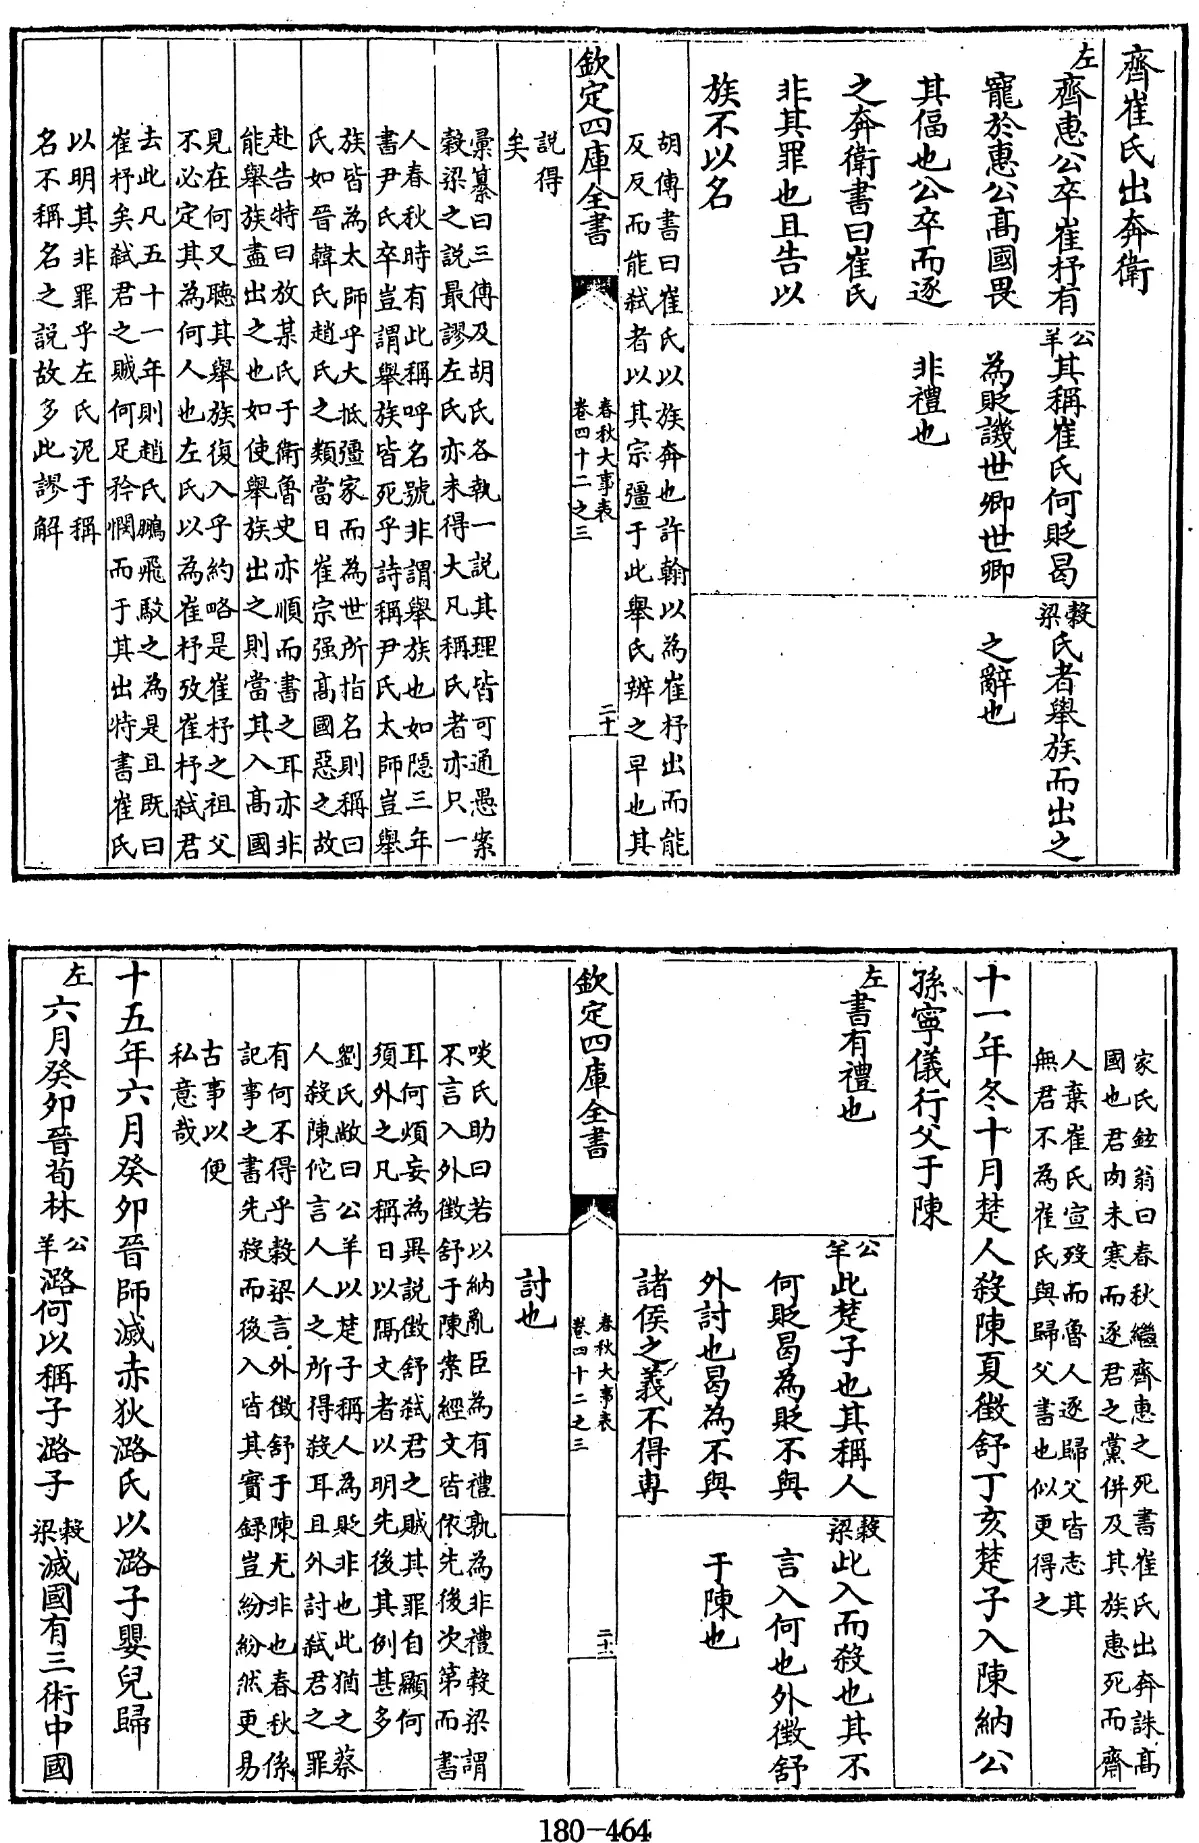 齊崔氏出奔衛
左
齊惠公卒崔杼有
寵於惠公高國畏
其偪也公卒而逐
之奔衛書曰崔氏
非其罪也且告以
族不以名
公羊
其稱崔氏何貶曷
為貶譏世卿世卿
非禮也
穀梁
氏者舉族而出之
之辭也
胡傳書曰崔氏以族奔也許翰以為崔杼出而能
反反而能弑者以其宗彊于此舉氏辨之早也其
說得
矣
欽定四庫全書
春秋大事表
卷四十二之三
二十
彙纂曰三傳及胡氏各執一說其理皆可通愚案
穀梁之說最謬左氏亦未得大凡稱氏者亦只一
人春秋時有此稱呼名號非謂舉族也如隱三年
書尹氏卒豈謂舉族皆死乎詩稱尹氏太師豈舉
族皆為太師乎大抵彊家而為世所指名則稱曰
氏如晉韓氏趙氏之類當日崔宗强高國惡之故
赴告特曰放某氏于衛魯史亦順而書之耳亦非
能舉族盡出之也如使舉族出之則當其入高國
見在何又聽其舉族復入乎約略是崔杼之祖父
不必定其為何人也左氏以為崔杼攷崔杼弑君
去此凡五十一年則趙氏鵬飛駁之為是且既曰
崔杼矣弑君之賊何足矜憫而于其出特書崔氏
以明其非罪乎左氏泥于稱
名不稱名之說故多此謬解
家氏鉉翁曰春秋繼齊惠之死書崔氏出奔誅高
國也君肉未寒而逐君之黨併及其族惠死而齊
人棄崔氏宣歿而魯人逐歸父皆志其
無君不為崔氏與歸父書也似更得之
十一年冬十月楚人殺陳夏徵舒丁亥楚子入陳納公
孫寧儀行父于陳
左
書有禮也
公羊
此楚子也其稱人
何貶曷為貶不與
外討也曷為不與
諸侯之義不得專
討也
穀梁
此入而殺也其不
言入何也外徵舒
于陳也
欽定四庫全書
春秋大事表
卷四十二之三
二十一
啖氏助曰若以納亂臣為有禮孰為非禮穀梁謂
不言入外徵舒于陳案經文皆依先後次第而書
耳何煩妄為異說徵舒弑君之賊其罪自顯何
須外之凡稱日以隔文者以明先後其例甚多
劉氏敞曰公羊以楚子稱人為貶非也此猶之蔡
人殺陳佗言人人之所得殺耳且外討弑君之罪
有何不得乎穀梁言外徵舒于陳尤非也春秋係
記事之書先殺而後入皆其實録豈紛紛然更易
古事以便
私意哉
十五年六月癸卯晉師滅赤狄潞氏以潞子嬰兒歸
左
六月癸卯晉荀林
公羊
潞何以稱子潞子
穀梁
滅國有三術中國
180-464